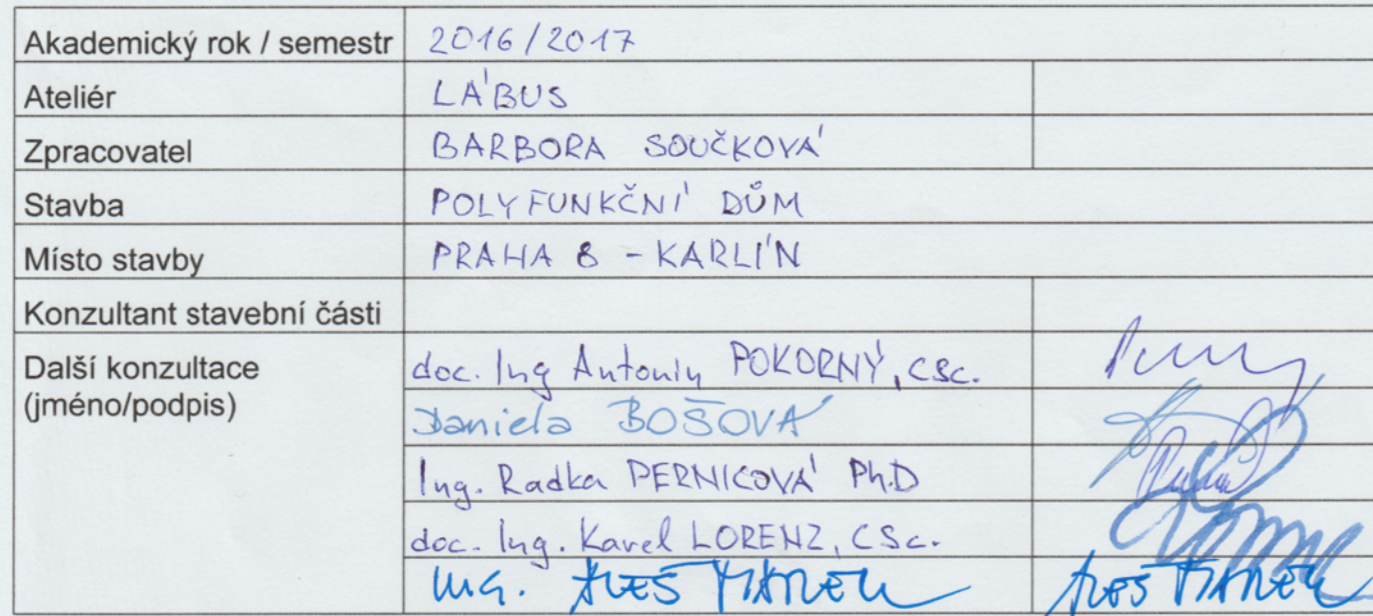 Akademický rok / semestr 2016/2017
Ateliér LÁBUS
Zpracovatel BARBORA SOUČKOVÁ
Stavba POLYFUNKČNÍ DŮM
Místo stavby PRAHA 8 - KARLÍN
Konzultant stavební části
Další konzultace doc. Ing Antonín POKORNÝ, CSc.
(jméno/podpis)
Daniela BOŠOVÁ
Ing. Radka PERNICOVÁ Ph.D
doc. Ing. Karel LORENZ, CSc.
ING. ALEŠ MAREK ALEŠ MAREK